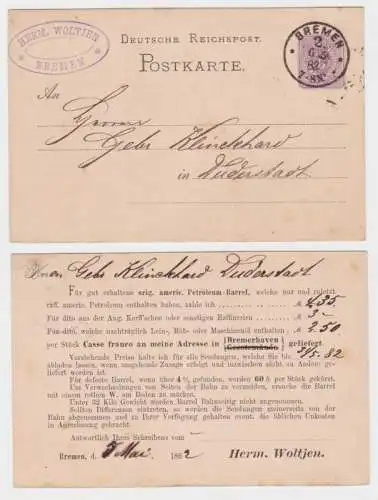 HERM. WOLTJEN
BREMEN
DEUTSCHE REICHSPOST.
POSTKARTE.
BREMEN
2.
6 5
82
7-8N.
An
Herren
Gebr Klinckhard
in Duderstadt
Herren Gebr Klinckhard Duderstadt
Für gut erhaltene orig. americ. Petroleum-Barrel, welche nur und zuletzt
raff. americ. Petroleum enthalten haben, zahle ich M. 4.35
Für dito aus der Aug. Korff'schen oder sonstigen Raffinerien M 3.-
Für dito, welche nachträglich Lein-, Rüb- oder Maschinenöl enthalten M. 2.50
per Stück Casse franco an meine Adresse in Bremerhaven Geestemünde geliefert
Vorstehende Preise halte ich für alle Sendungen, welche Sie bis 31/5. 82
abladen lassen, wenn umgehende Zusage erfolgt und inzwischen nicht zu Andere ge-
liefert worden ist.
Für defecte Barrel, wenn über 4% gefunden, werden 60 ₰ per Stück gekürzt.
Um Verwechselungen von Seiten der Bahn zu vermeiden, ersuche die Barrel mit
einem rothen W. am Boden zu marken.
Unter 32 Kilo Gewicht werden Barrel Bahnseitig nicht angenommen.
Sollten Differenzen eintreten, so werden die Sendungen meinerseits von der
Bahn angenommen und zu Ihrer Verfügung gehalten event. die üblichen Unkosten
in Anrechnung gebracht.
Antwortlich Ihres Schreibens vom -
Bremen, d. 5 Mai 1882 Herm. Woltjen.